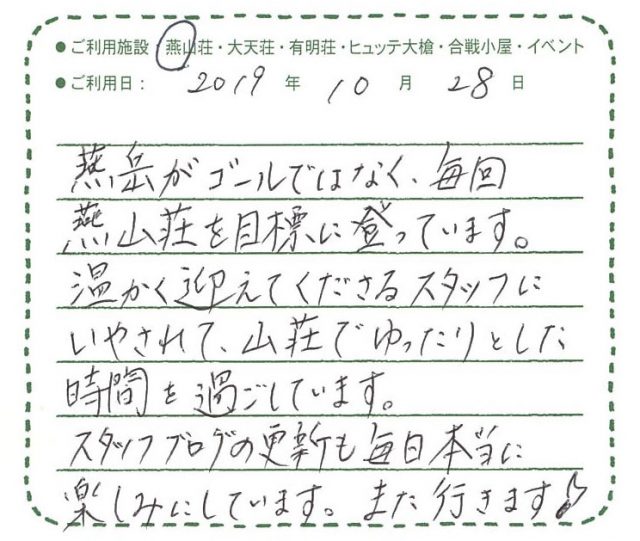 ●ご利用施設・燕山荘・大天荘・有明荘・ヒュッテ大槍・合戦小屋・イベント
●ご利用日： 2019 年 10 月 28 日
燕岳がゴールではなく、毎回
燕山荘を目標に登っています。
温かく迎えてくださるスタッフに
いやされて、山荘でゆったりとした
時間を過ごしています。
スタッフブログの更新も毎日本当に
楽しみにしています。また行きます♪